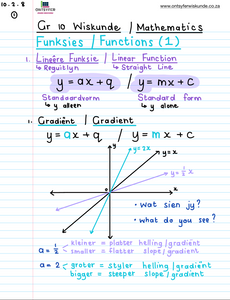 10.2.8
①
ONTSYFER WISKUNDE
www.ontsyferwiskunde.co.za
Gr 10 Wiskunde / Mathematics
Funksies / Functions (1)
1. Lineêre Funksie / Linear Function
↳ Reguitlyn ↳ Straight Line
y = ax + q / y = mx + c
Standaardvorm Standard form
↳ y alleen ↳ y alone
2. Gradiënt / Gradient
y = ax + q / y = mx + c
y
y = 2x
y = x
y = ½x
x
0
• wat sien jy?
• what do you see?
a = ½ kleiner = platter helling/gradiënt
smaller = flatter slope/gradient
a = 2 groter = styler helling/gradiënt
bigger = steeper slope/gradient